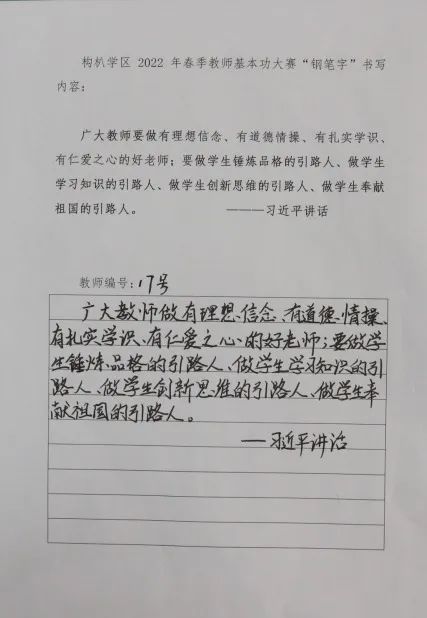 构朳学区 2022 年春季教师基本功大赛“钢笔字”书写
内容：
广大教师要做有理想信念、有道德情操、有扎实学识、
有仁爱之心的好老师；要做学生锤炼品格的引路人、做学生
学习知识的引路人、做学生创新思维的引路人、做学生奉献
祖国的引路人。 ————习近平讲话
教师编号：17号
广大教师做有理想信念、有道德情操、
有扎实学识、有仁爱之心的好老师；要做学
生锤炼品格的引路人、做学生学习知识的引
路人、做学生创新思维的引路人、做学生奉
献祖国的引路人。
——习近平讲话